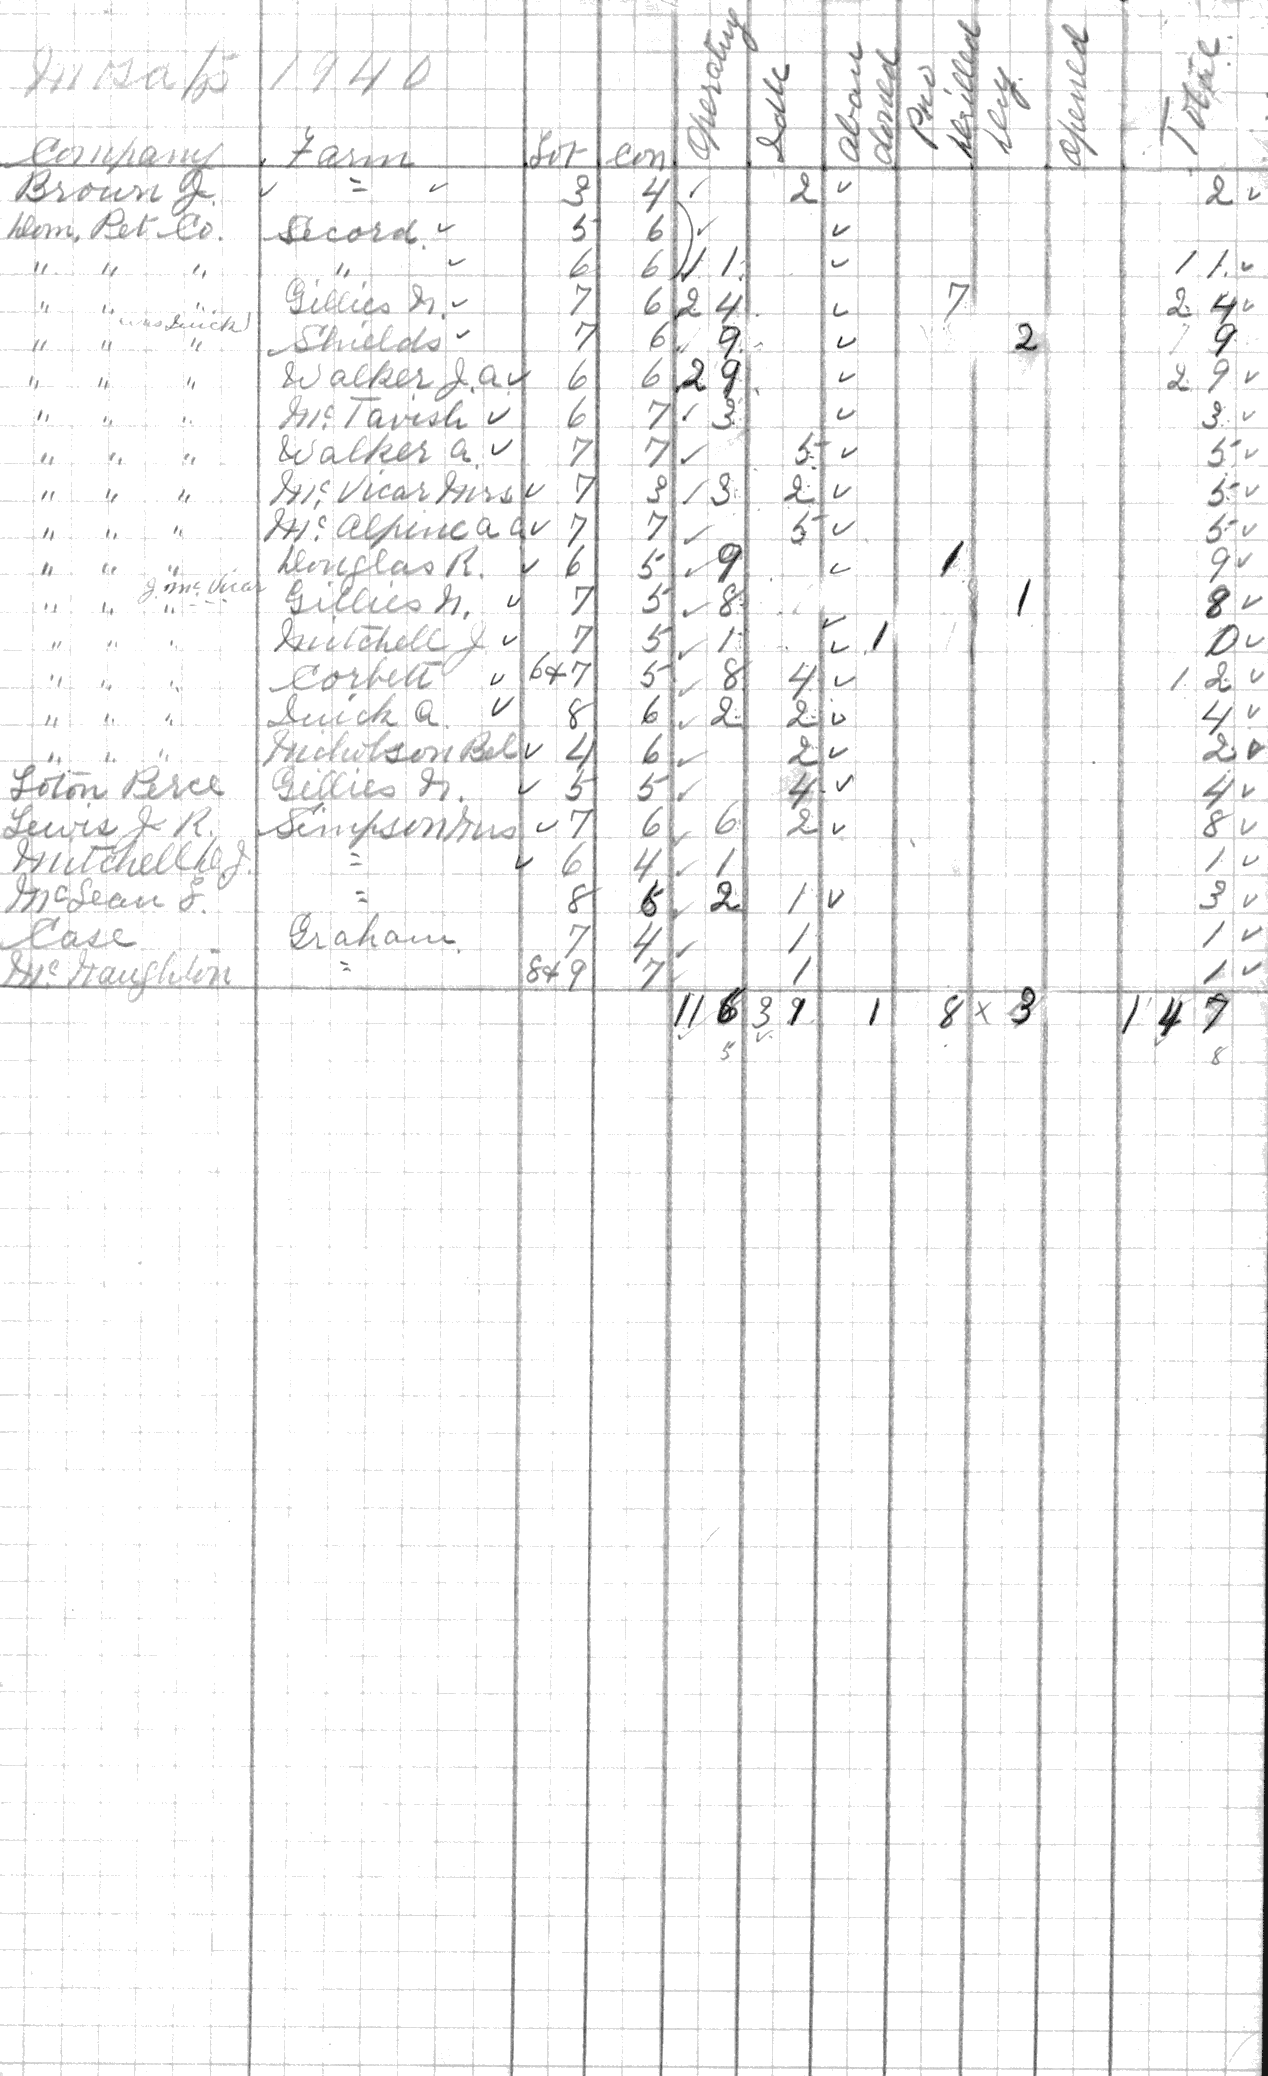 Mosa 1940
Company Farm Lot Con Operating Idle Aban doned Pro Drilled Dry Opened Total
Brown J. ✓ = ✓ 3 4 ✓ 2 ✓ 2 ✓
Dom. Pet. Co. Secord. ✓ 5 6 ✓ ✓
" " " " ✓ 6 6 11 ✓ 11 ✓
" " " Gillies N. ✓ 7 6 24 ✓ 7 24 ✓
(was Quick)
" " " Shields ✓ 7 6 9 ✓ 2 9
" " " Walker J. A. ✓ 6 6 29 ✓ 29 ✓
" " " Mc Tavish ✓ 6 7 ✓ 3 ✓ 3 ✓
" " " Walker A. ✓ 7 7 ✓ 5 ✓ 5 ✓
" " " Mc Vicar Mrs ✓ 7 3 ✓ 3 2 ✓ 5 ✓
" " " Mc Alpine A A ✓ 7 7 ✓ 5 ✓ 5 ✓
" " " Douglas R. ✓ 6 5 ✓ 9 ✓ 1 9 ✓
J. Mc Vicar
" " " Gillies N. ✓ 7 5 ✓ 8 ✓ 1 8 ✓
" " " Mitchell J ✓ 7 5 ✓ 1 ✓ 1 0 ✓
" " " Corbett ✓ 6&7 5 ✓ 8 4 ✓ 12 ✓
" " " Quick A. ✓ 8 6 ✓ 2 2 ✓ 4 ✓
" " " Nicholson Bel ✓ 4 6 ✓ 2 ✓ 2 ✓
Loton Perce Gillies N. ✓ 5 5 ✓ 4 ✓ 4 ✓
Lewis J R. Simpson Mrs ✓ 7 6 ✓ 6 2 ✓ 8 ✓
Mitchell D. J. = ✓ 6 4 ✓ 1 1 ✓
McLean E. = 8 6 ✓ 2 1 ✓ 3 ✓
Case Graham 7 4 ✓ 1 1 ✓
Mc Naughton = 8&9 7 1 1 ✓
116 31 1 8 x 3 147
5 8